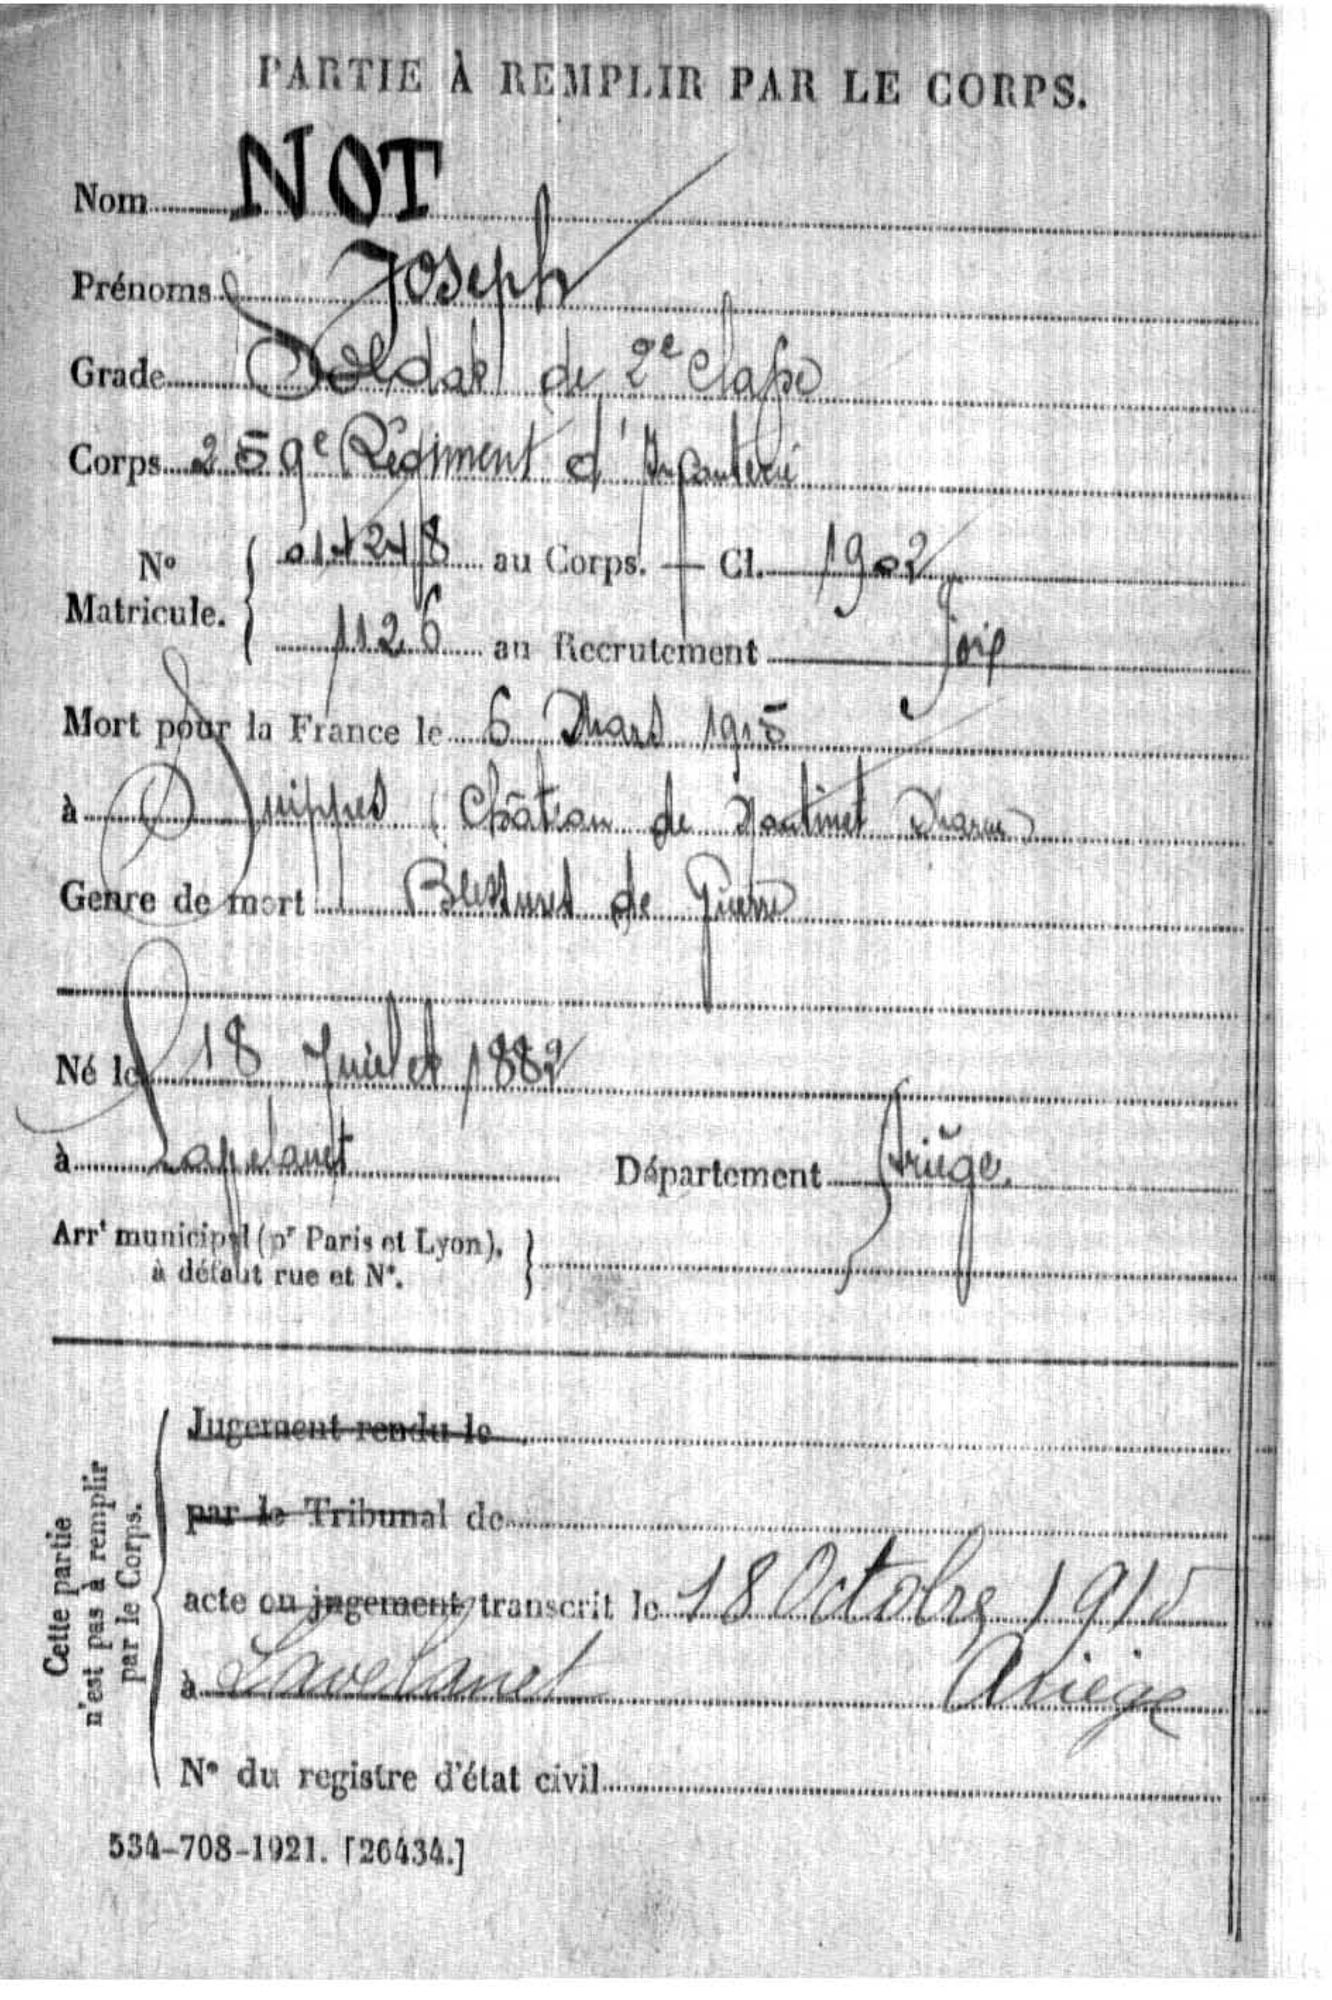 PARTIE À REMPLIR PAR LE CORPS.
Nom NOT
Prénoms Joseph
Grade Soldat de 2e Classe
Corps 259e Régiment d'Infanterie
No Matricule. au Corps. — Cl. 1902
1126 au Recrutement Foix
Mort pour la France le 6 Mars 1915
à Suippes (Château de Nantivet Marne)
Genre de mort Blessures de Guerre
Né le 18 Juillet 1882
à Lavelanet Département Ariège.
Arrt municipal (pr Paris et Lyon),
à défaut rue et No.
Cette partie
n'est pas à remplir
par le Corps.
Jugement rendu le
par le Tribunal de
acte ou jugement transcrit le 18 Octobre 1915
à Lavelanet Ariège
No du registre d'état civil
534-708-1921. [26434.]